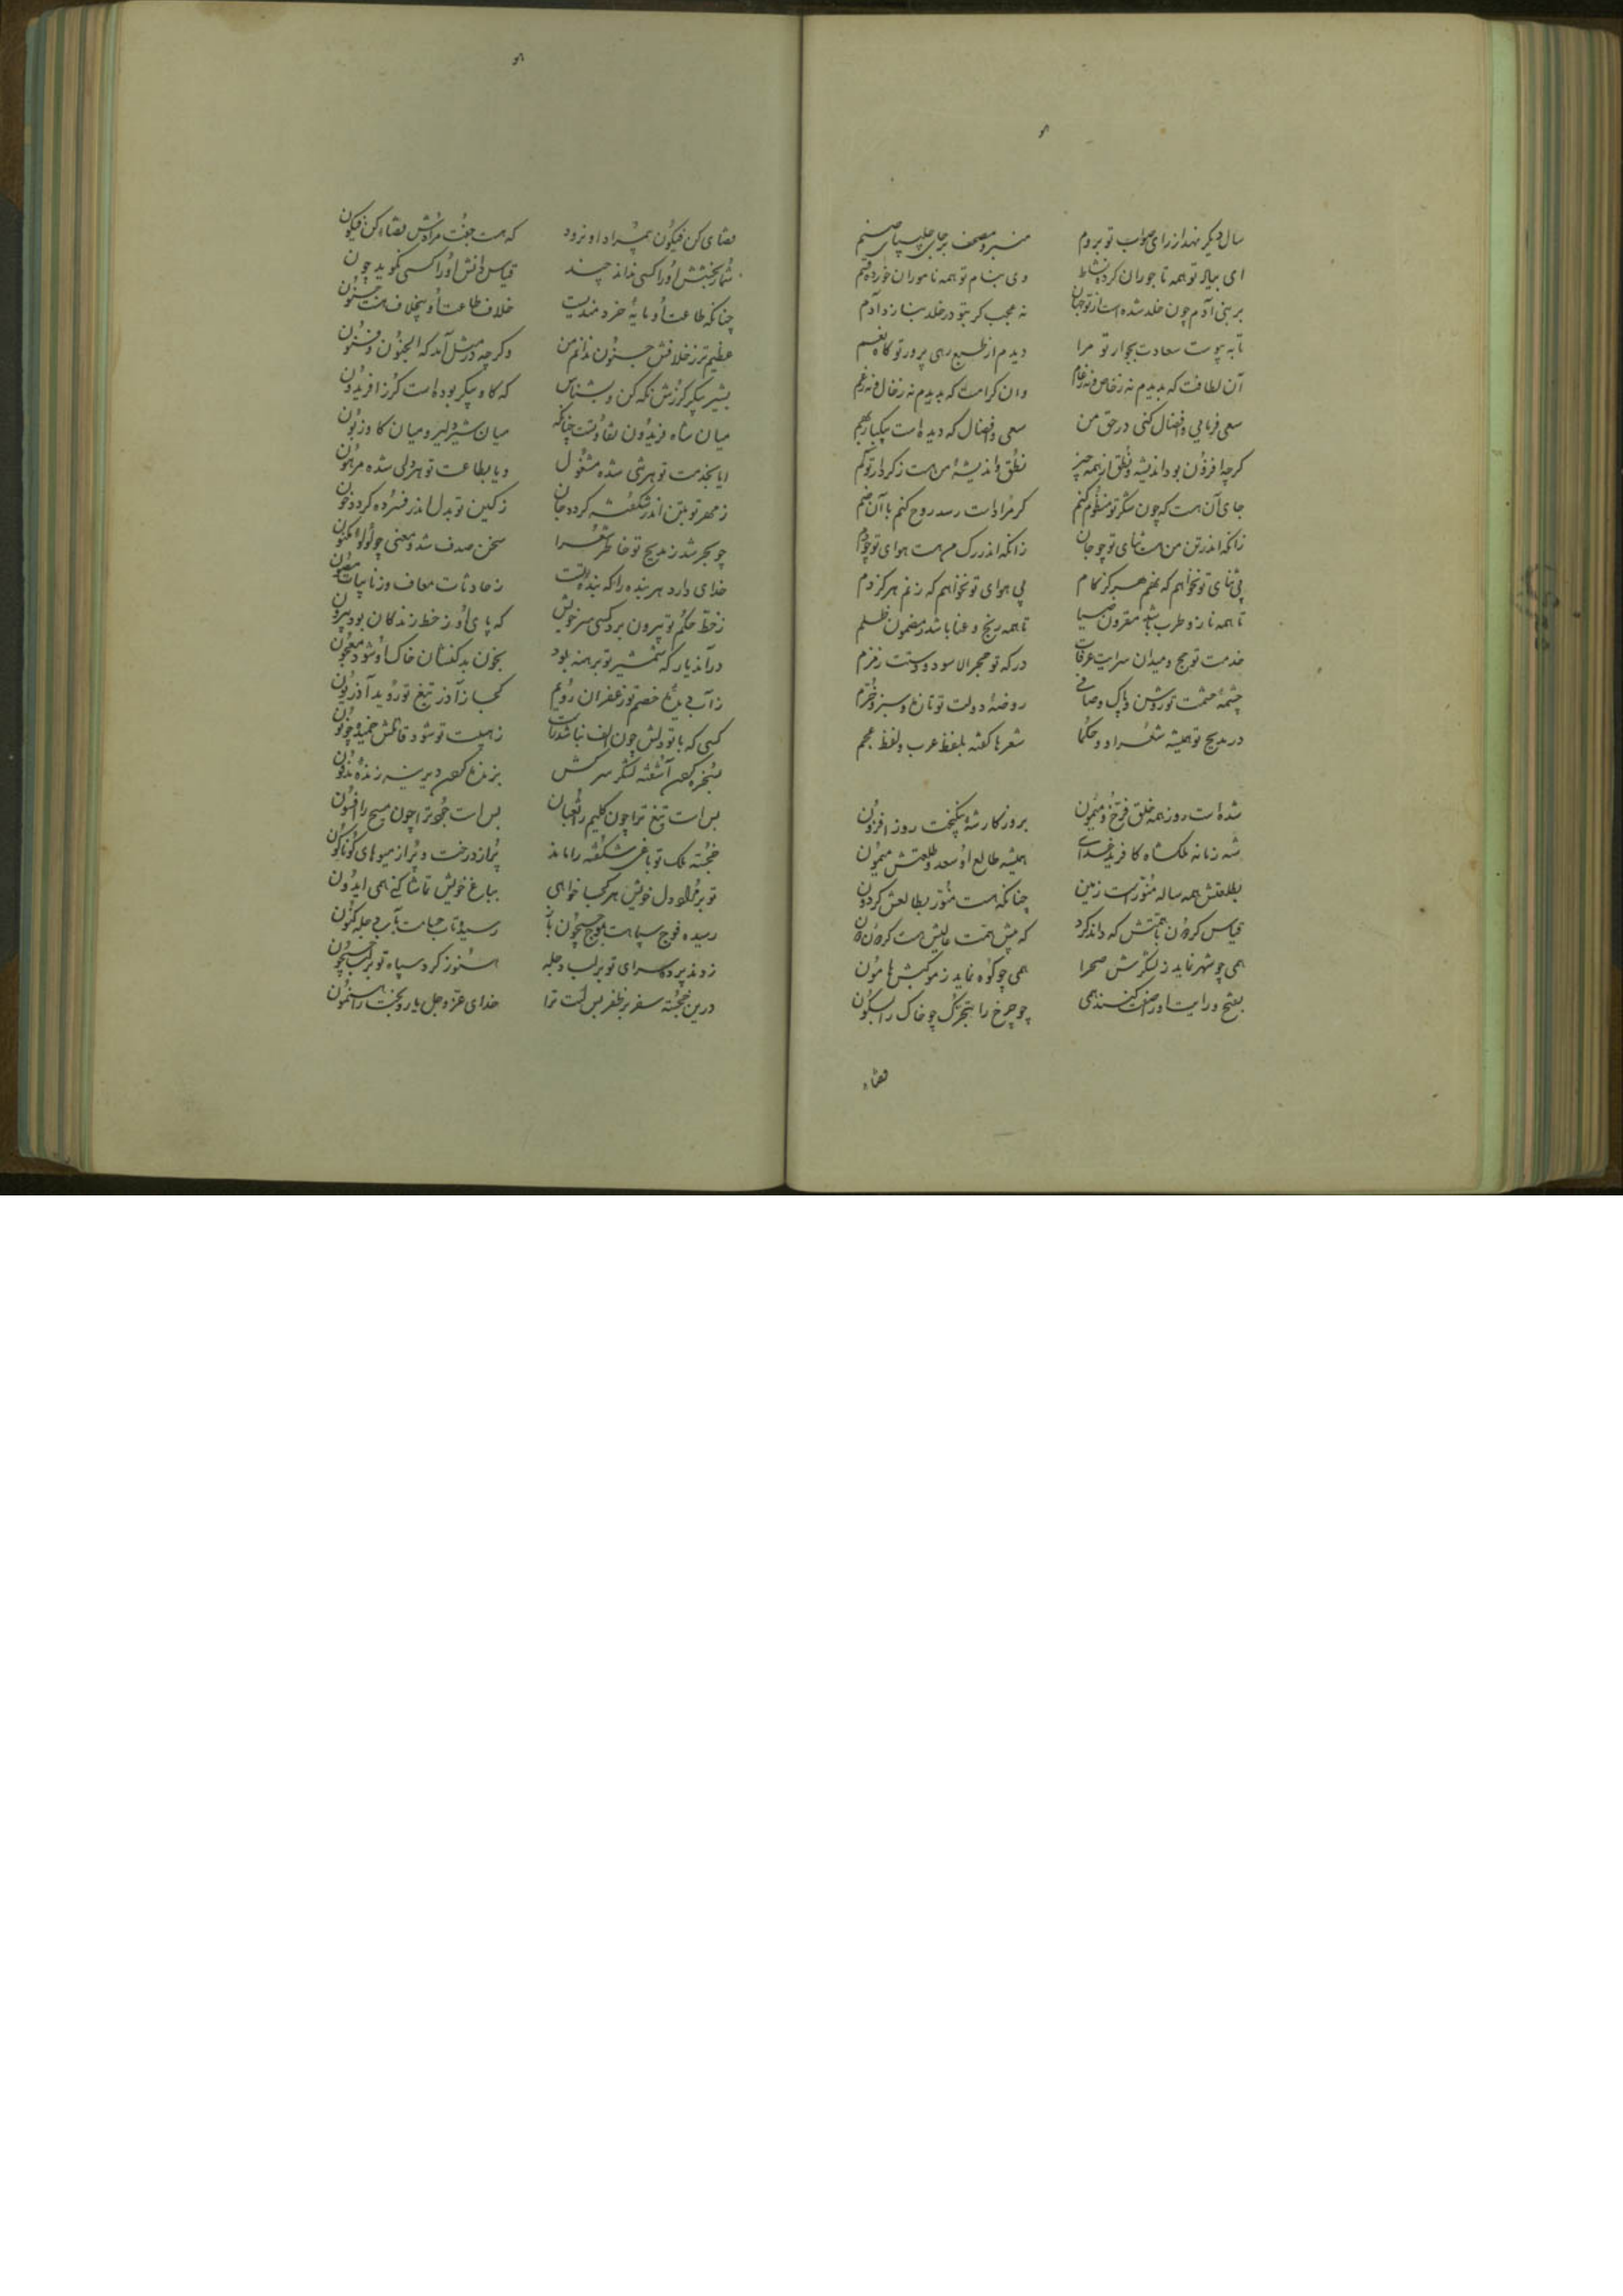 سال دیگر نهد از رای صواب تو بروم
منبر و مصحف بر جای چلیپا و صنم
ای بیاد تو همه تاجوران کرده نشاط
وی بنام تو همه ناموران خورده قسم
بر بنی آدم چون خلد شده است از تو جهان
نه عجب گر بتو در خلد بنازد آدم
تا به پیوست سعادت بجوار تو مرا
دیدم از طبع رهی پرور تو کاه نعم
آن لطافت که بدیدم نه ز خاص و نه ز عام
وان کرامت که بدیدم نه ز خال و نه ز عم
سعی فرمایی و افضال کنی در حق من
سعی و افضال که دیده است بیکبار بهم
گرچه افزون بود اندیشه و نطق از همه چیز
نطق و اندیشهٔ من هست ز کردار تو کم
جای آن هست که چون شکر تو منظوم کنم
گر مرادات رسد روح کنم با آن ضم
زانکه اندر تن من هست ثنای تو چو جان
زانکه اندر رگ من هست هوای تو چو دم
بی ثنای تو نخواهم که نهم هرگز گام
بی هوای تو نخواهم که زنم هرگز دم
تا همه ناز و طرب باشد مقرون ضیا
تا همه رنج و عنا باشد مضمون ظلم
خدمت تو حج و میدان سرایت عرفات
درگه تو حجر الاسود و دستت زمزم
چشمهٔ حشمت تو روشن و پاک و صافی
روضهٔ دولت تو تازه و سبز و خرم
در مدیح تو همیشه شعرا و حکما
شعرها گفته بلفظ عرب و لفظ عجم
شده است روز همه خلق فرخ و میمون
بروزگار شه نیکبخت روز افزون
شه زمانه ملکشاه کافرید خدای
همیشه طالع او سعد و طلعتش میمون
بطلعتش همه ساله منور است زمین
چنانکه هست منور بطالعش گردون
قیاس گردون با همتش که داند کرد
که پیش همت عالیش هست گردون دون
همی چو شهر نماید ز لشکرش صحرا
همی چو کوه نماید ز موکبش هامون
بفتح و رایت او صفت کنند همی
چو چرخ را بتحرک چو خاک را بسکون
قضاء
قضای کن فیکون بمراد او نرود
که هست جفت مرادش قضاء کن فیکون
شمار بخشش او را کسی نداند چند
قیاس دانش او را کسی نگوید چون
چنانکه طاعت او مایهٔ خردمندیست
خلاف طاعت او بیخلاف هست جنون
عظیم‌تر ز خلافش جنون ندانم من
وگرچه در مثل آمد که الجنون و فنون
بشیر پیکر گرزش نگه کن و بشناس
که گاو پیکر بوده است گرز افریدون
میان شاه فریدون تفاوتست چنانکه
میان شیر دلیر و میان گاو زبون
ایا بخدمت تو هر تنی شده مشغول
و یا بطاعت تو هر دلی شده مرهون
ز مهر تو بتن اندر شکفته گردد جان
ز کین تو بدل اندر فسرده گردد خون
چو بحر شد ز مدیح تو خاطر شعرا
سخن صدف شد و معنی چو لؤلؤ مکنون
خدای دارد هر بنده را که بندهٔ تست
ز حادثات معاف و ز نایبات مصون
ز خط حکم تو بیرون برد کسی سر خویش
که پای او ز خط زندگان بود بیرون
در آن دیار که شمشیر تو برهنه بود
بخون بدکنشان خاک او شود معجون
ز آب دیدهٔ خصم تو زعفران رویم
کجا ز آذر تیغ تو روید آذریون
کسی که با تو دلش چون الف نباشد راست
ز هیبت تو شود قامتش خمیده چو نون
بس است تیغ ترا چون کلیم را ثعبان
بس است جود ترا چون مسیح را افسون
خجسته ملک تو باغی شکفته را ماند
پر از درخت و پر از میوهای گوناگون
تو بر مراد دل خویش هر کجا خواهی
بباغ خویش تماشا کنی همی ایدون
رسیده فوج سپاهت بموج جیحون باز
رسید تاب حسامت بآب دجله کنون
زدند پرده سرای تو بر لب دجله
هنوز گرد سپاه تو بر لب جیحون
درین خجسته سفر بر ظفر بس است ترا
خدای عز و جل یار و بخت راهنمون